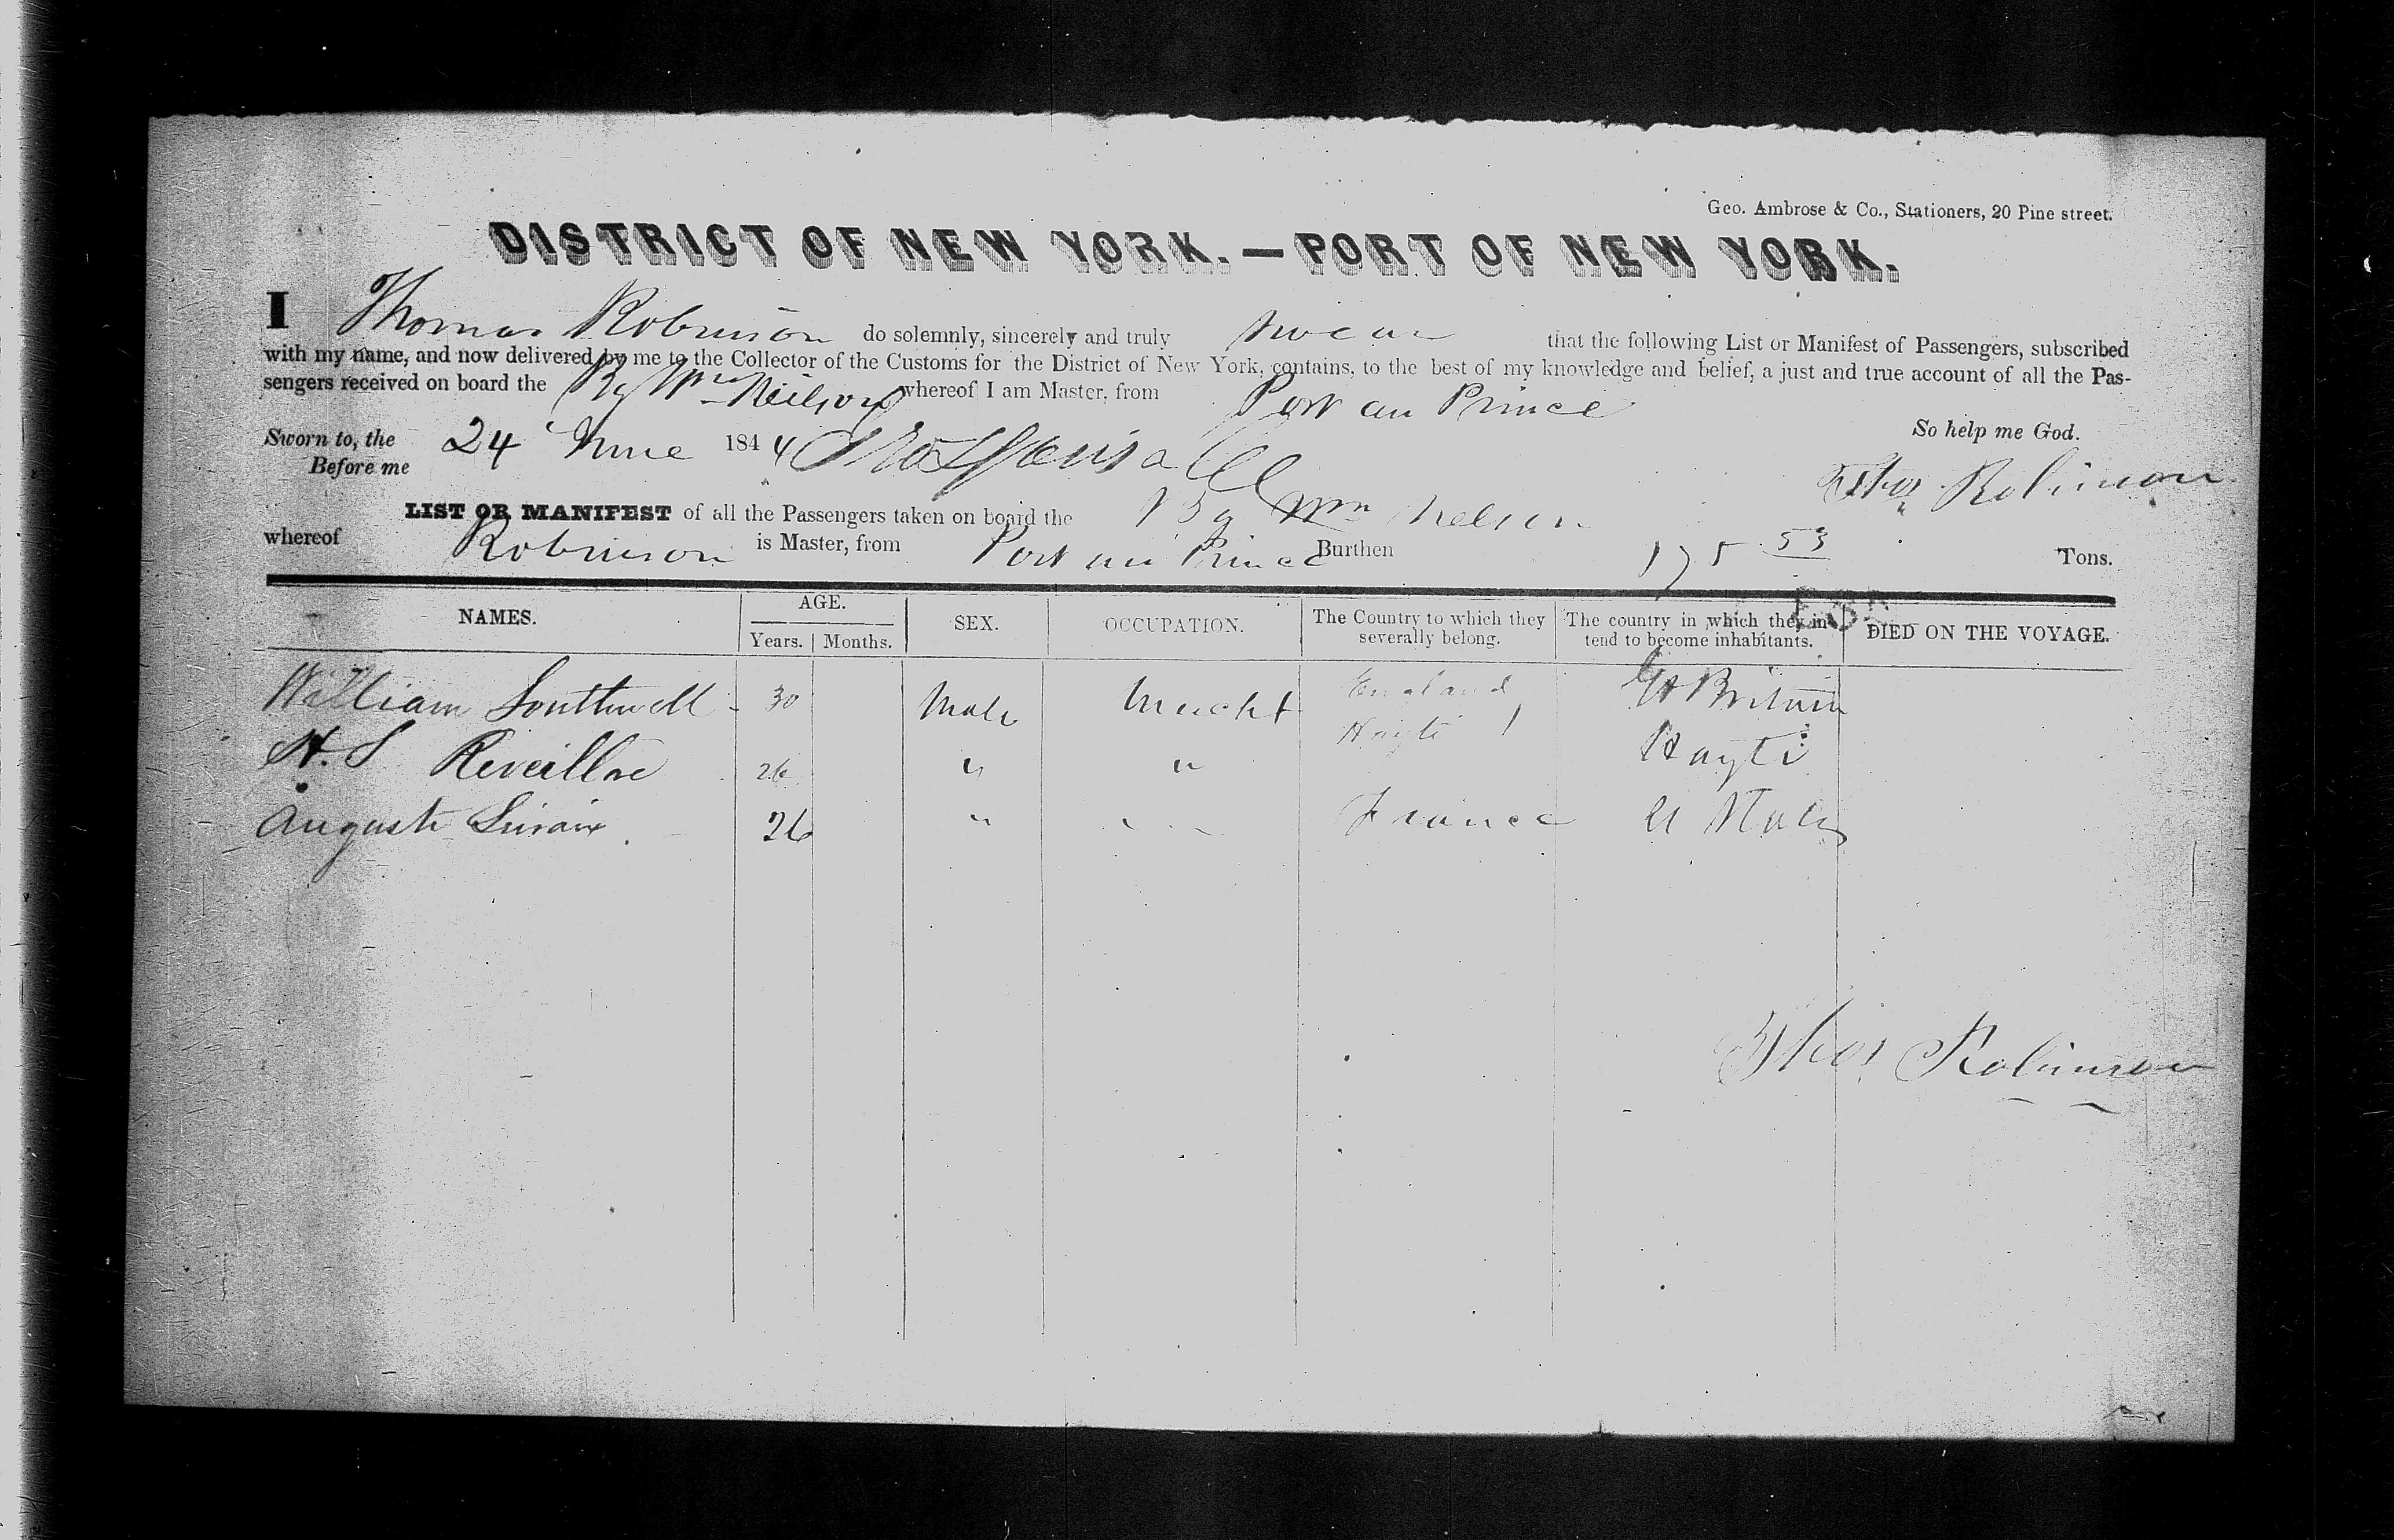 Geo. Ambrose & Co., Stationers, 20 Pine street.
DISTRICT OF NEW YORK. — PORT OF NEW YORK.
I Thomas Robinson do solemnly, sincerely and truly swear that the following List or Manifest of Passengers, subscribed
with my name, and now delivered by me to the Collector of the Customs for the District of New York, contains, to the best of my knowledge and belief, a just and true account of all the Pas-
sengers received on board the Bg Wm Neilson whereof I am Master, from Port au Prince
So help me God.
Sworn to, the 24 June 1844
Before me
Thos Robinson
LIST OR MANIFEST of all the Passengers taken on board the Bg Wm Nelson
whereof Robinson is Master, from Port au Prince Burthen 175 53 Tons.
NAMES. AGE. SEX. OCCUPATION. The Country to which they severally belong. The country in which they intend to become inhabitants. DIED ON THE VOYAGE.
Years. Months.
William Southwell 30 Male Mercht England Gt Britain
A. S Reveillac 26 " " Hayti Hayti
Auguste 26 " " France U States
Thos Robinson